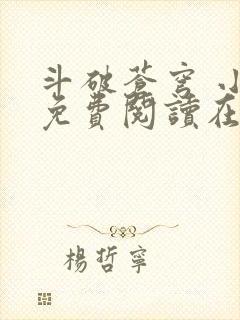 斗破蒼穹 小
免費閱讀在
楊哲寧